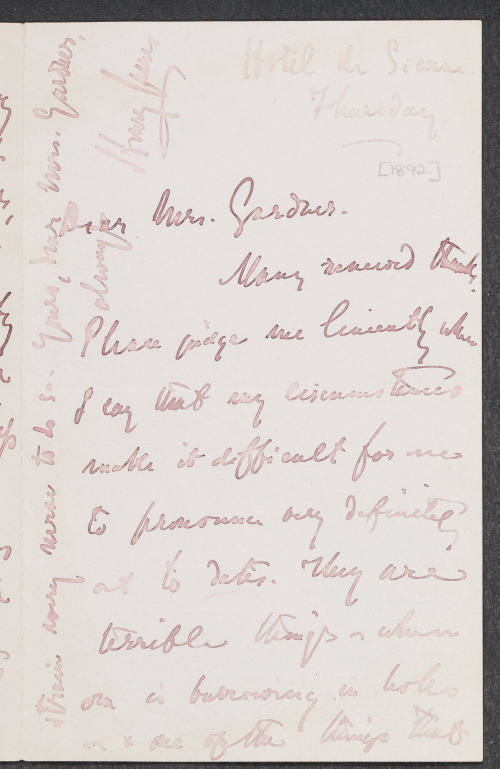 Hotel de Sienne
Thursday.
[1892]
Dear Mrs. Gardner.
Many renewed thanks.
Please judge me leniently when
I say that my circumstances
make it difficult for me
to pronounce very definitely
as to dates. They are
terrible things when
one is burrowing in holes
one of the things that
strain every nerve to do so. Yours, dear Mrs. Gardner,
always
Henry James